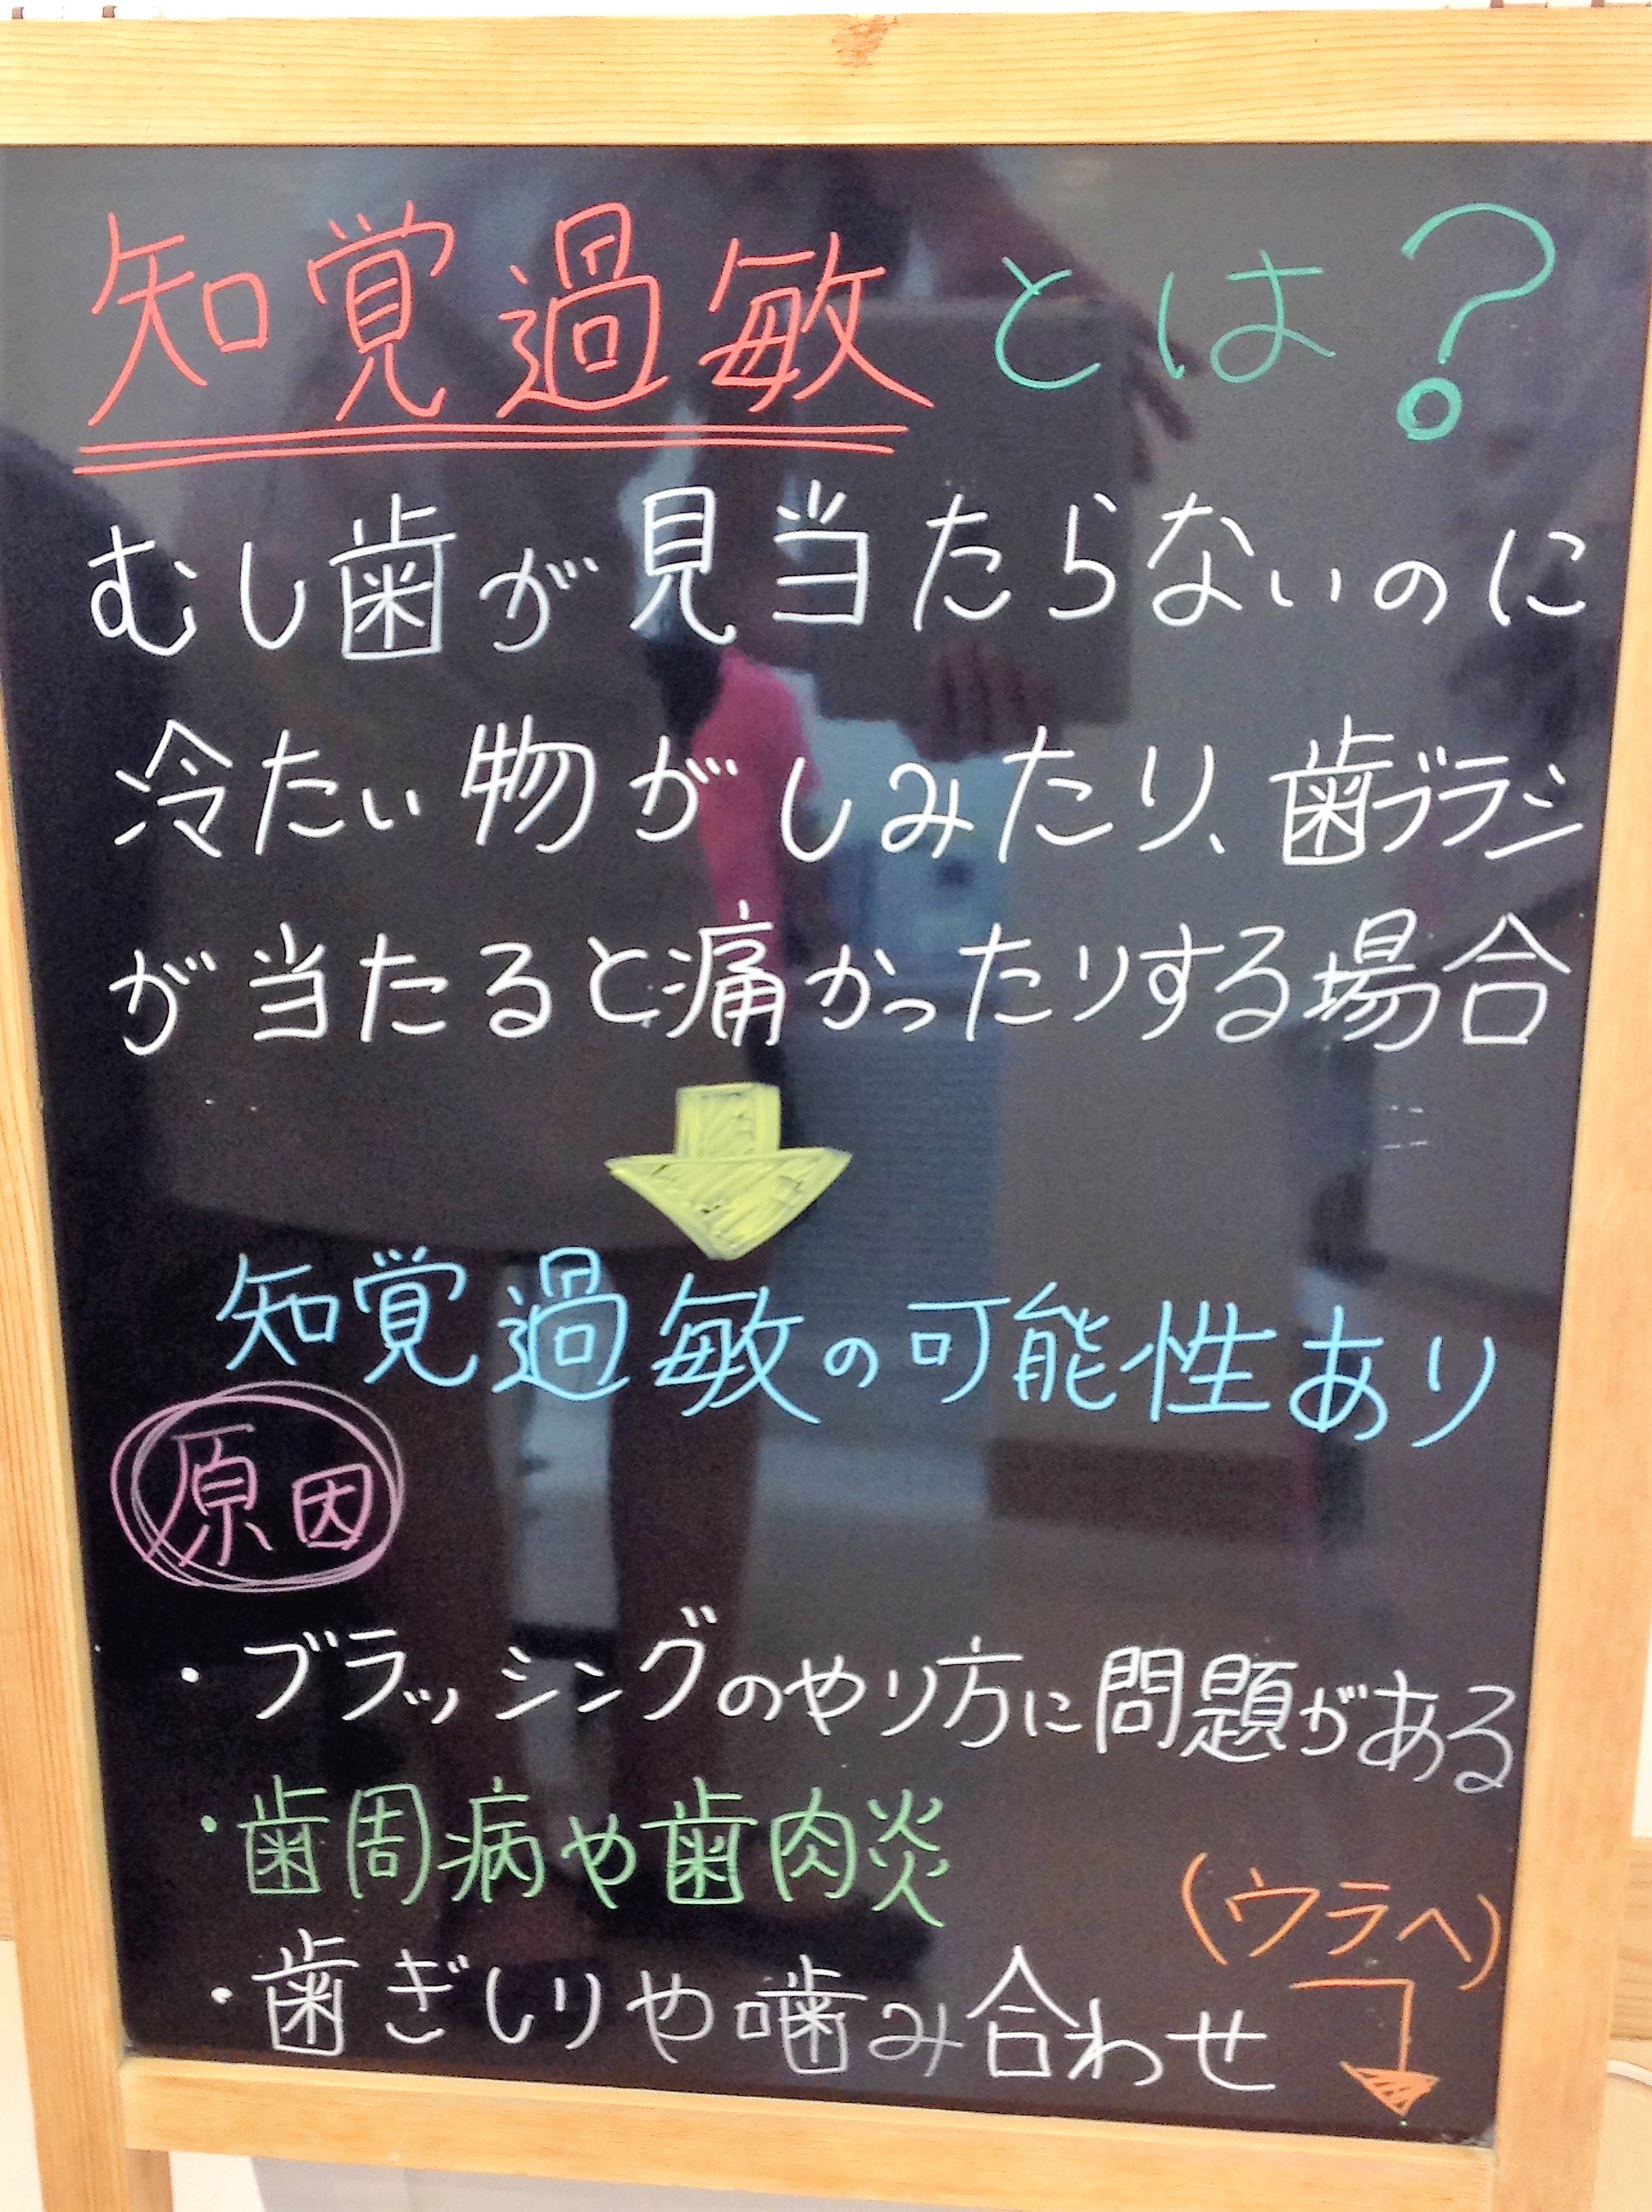 知覚過敏とは？
むし歯が見当たらないのに
冷たい物がしみたり、歯ブラシ
が当たると痛かったりする場合
知覚過敏の可能性あり
原因
・ブラッシングのやり方に問題がある
・歯周病や歯肉炎
(ウラへ)
・歯ぎしりや噛み合わせ